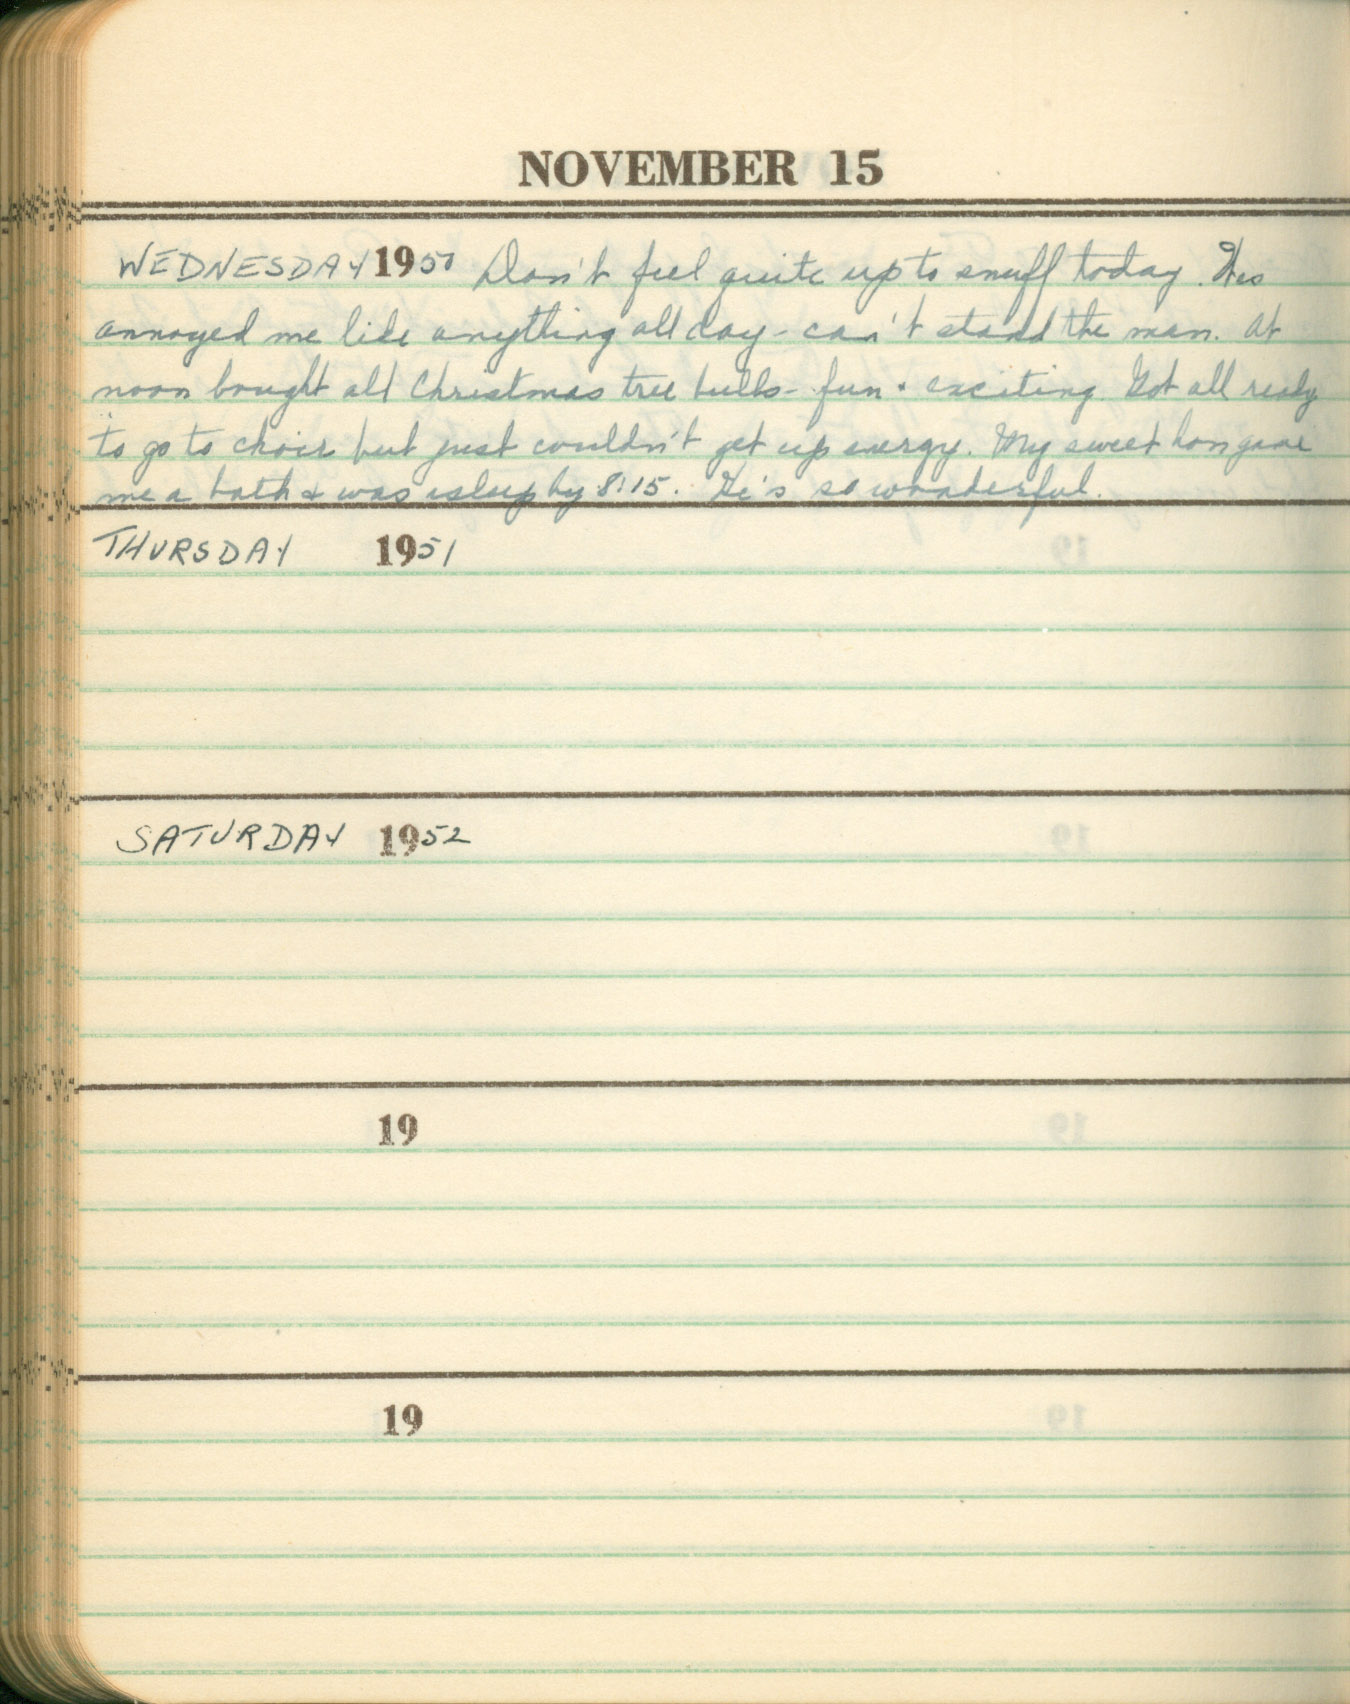 NOVEMBER 15
WEDNESDAY 1950 Don't feel quite up to snuff today. Wes
annoyed me like anything all day - can't stand the man. At
noon bought all Christmas tree bulbs - fun + exciting. Got all ready
to go to choir but just couldn't get up energy. My sweet hon gave
me a bath & was asleep by 8:15. He's so wonderful.
THURSDAY 1951
SATURDAY 1952
19
19